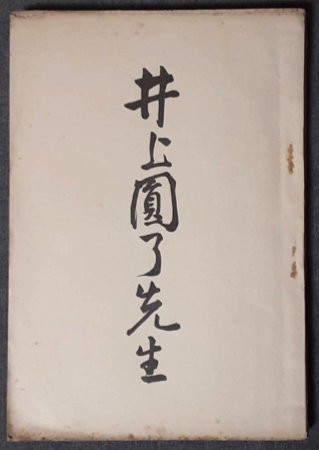 井上圓了先生